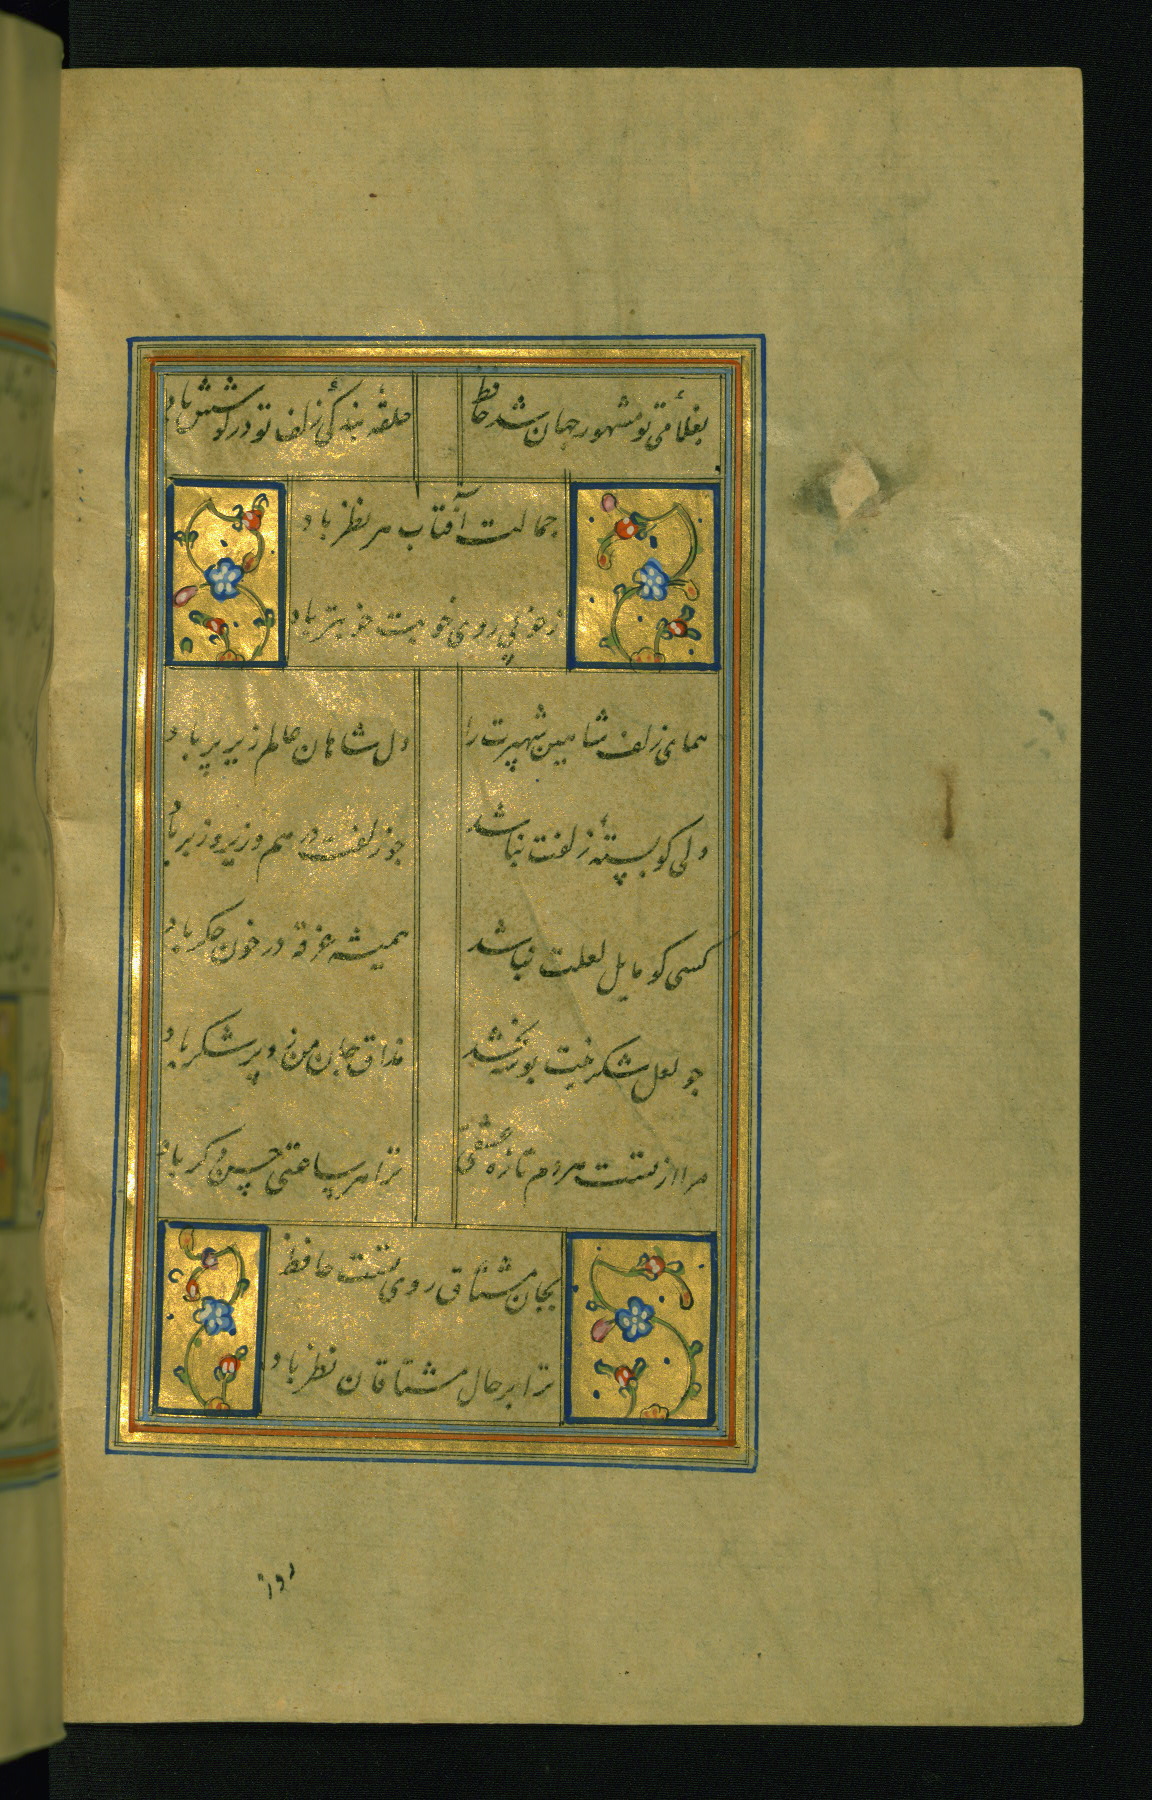 بغلامی تو مشهور جهان شد حافظ
حلقهٔ بندگی زلف تو در گوشش باد
جمالت آفتاب هر نظر باد
ز خوبی روی خوبت خوبتر باد
همای زلف شاهین شهپرت را
دل شاهان عالم زیر پر باد
دلی کو بستهٔ زلفت نباشد
جو زلفت درهم و زیر و زبر باد
کسی کو مایل لعلت نباشد
همیشه غرقه در خون جکر باد
جو لعل شکرینت بوسه بخشد
مذاق جان من زو پر شکر باد
مرا از تست هر دم تازه عشقی
ترا هر ساعتی حسن دکر باد
بجان مشتاق روی تست حافظ
ترا بر حال مشتاقان نظر باد